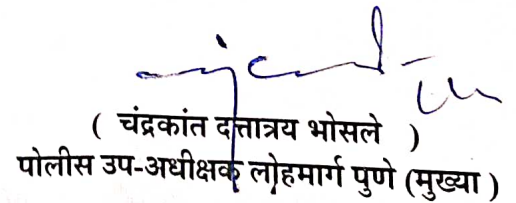 ( चंद्रकांत दत्तात्रय भोसले )
पोलीस उप-अधीक्षक लोहमार्ग पुणे (मुख्या )